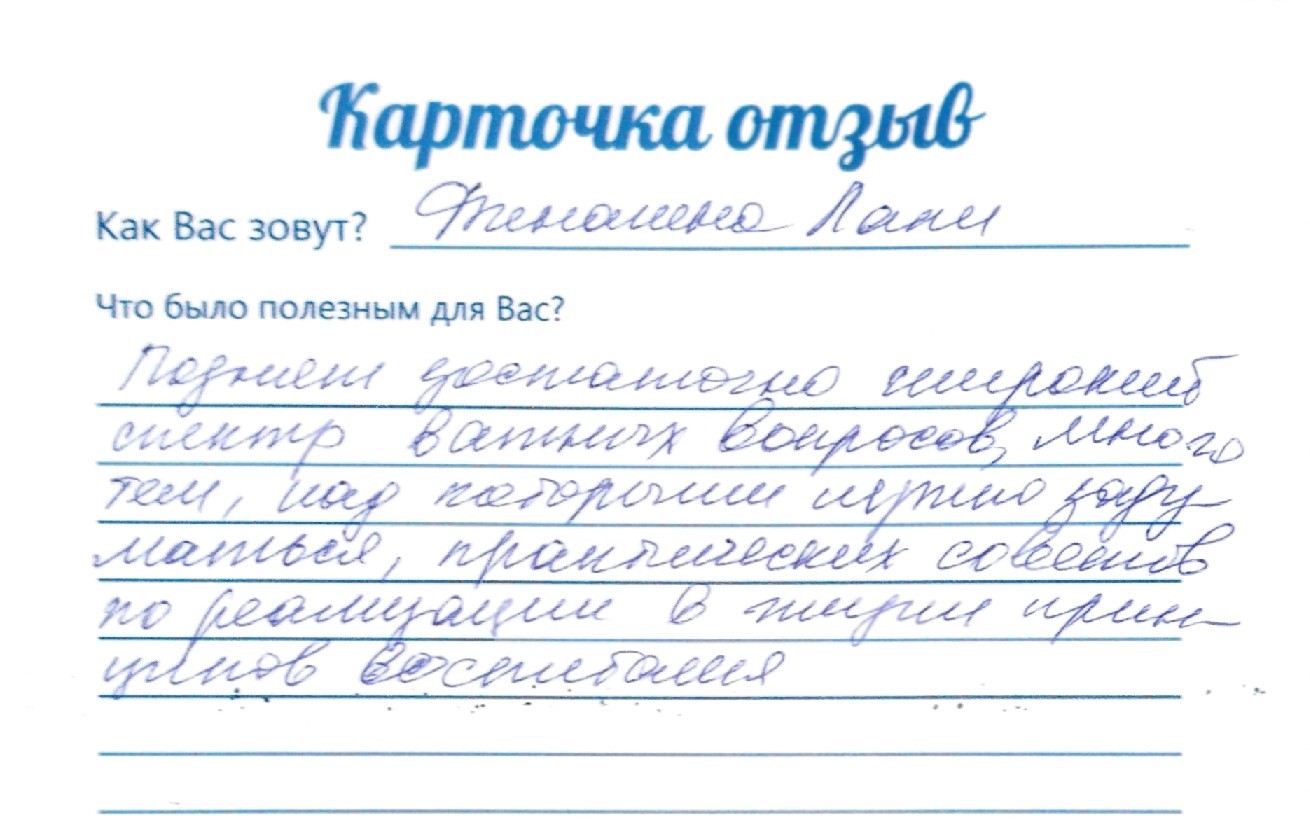 Карточка отзыв
Как Вас зовут? Лани
Что было полезным для Вас?
Поднят достаточно широкий
спектр важных вопросов, много
тем, над которыми нужно заду-
маться, практических советов
по реализации в жизни прин-
ципов воспитания